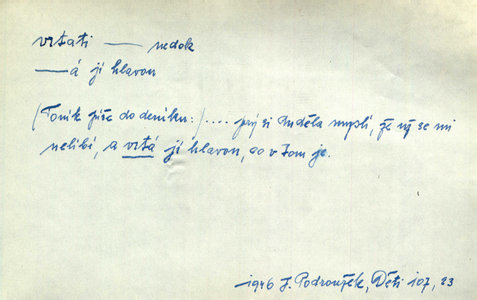 vrtati — nedok
—á jí hlavou
(Toník píše do deníku:) .... prý si Anděla myslí, že už se mi
nelíbí, a vrtá jí hlavou, co v tom je.
1946 J. Podroužek, Děti 107, 23